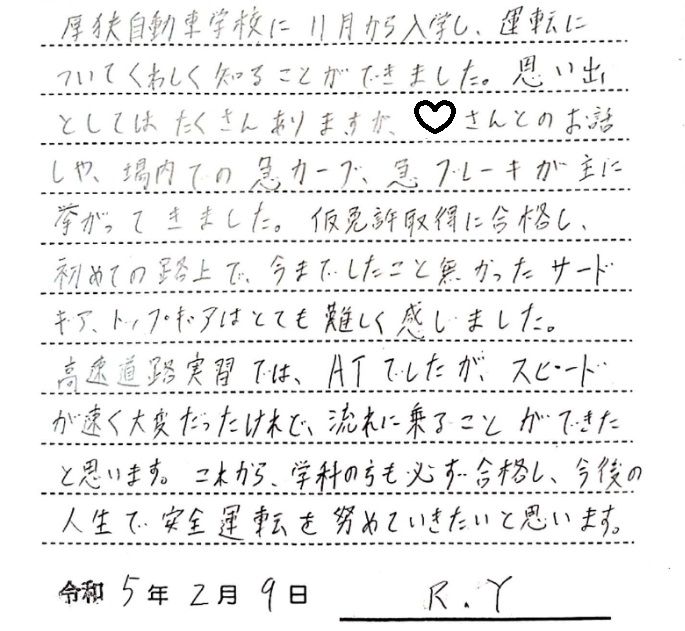 厚狭自動車学校に11月から入学し、運転に
ついてくわしく知ることができました。思い出
としてはたくさんありますが、♡さんとのお話
しや、場内での急カーブ、急ブレーキが主に
挙がってきました。仮免許取得に合格し、
初めての路上で、今までしたこと無かったサード
ギア、トップギアはとても難しく感じました。
高速道路実習では、ATでしたが、スピード
が速く大変だったけれど、流れに乗ることができた
と思います。これから、学科の方も必ず合格し、今後の
人生で安全運転を努めていきたいと思います。
令和5年2月9日 R.Y